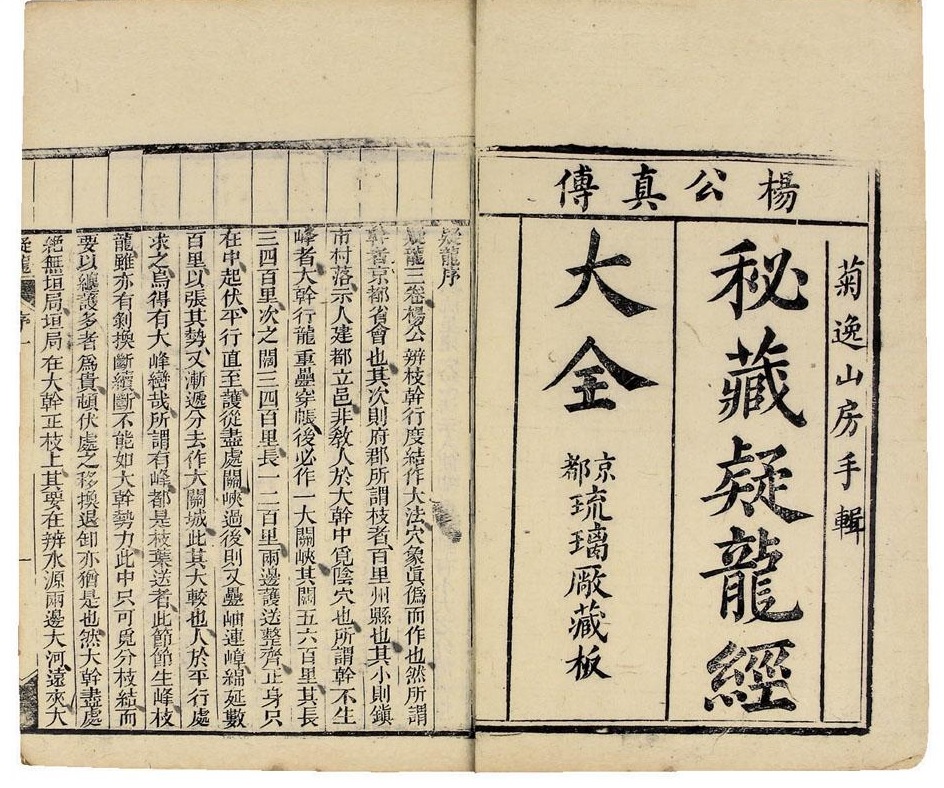 楊公真傳
菊逸山房手輯
秘藏疑龍經
大全
京都
琉璃厰藏板
疑龍序
疑龍三卷楊公辨枝幹行度結作大法穴象眞僞而作也然所謂
幹者京都省會也其次則府郡所謂枝者百里州縣也其小則鎮
市村落示人建都立邑非敎人於大幹中覓陰穴也所謂幹不生
峰者大幹行龍重疊穿帳後必作一大關峽其闊五六百里其長
三四百里次之闊三四百里長一二百里兩邊護送整齊正身只
在中起伏平行直至護從盡處關峽過後則又疊岫連嶂綿延數
百里以張其勢又漸遞分去作大關城此其大較也人於平行處
求之烏得有大峰巒哉所謂有峰都是枝葉送者此節節生峰枝
龍雖亦有剝換斷續斷不能如大幹勢力此中只可覓分枝結而
要以纏護多者爲貴頓伏處之移換退卸亦猶是也然大幹盡處
絶無垣局垣局在大幹正枝上其要在辨水源兩邊大河遠夾大
疑龍 序 一